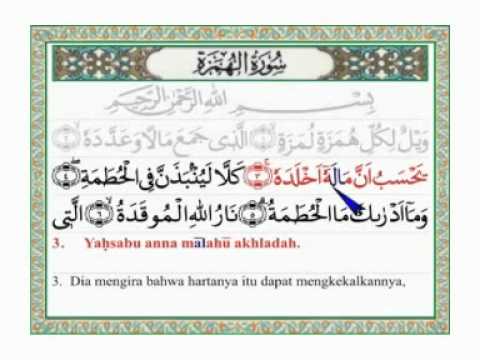 سُورَةُ الْهُمَزَةِ
بِسْمِ اللهِ الرَّحْمٰنِ الرَّحِيْمِ
وَيْلٌ لِكُلِّ هُمَزَةٍ لُمَزَةٍ ۝١ الَّذِى جَمَعَ مَالًا وَعَدَّدَهُ ۝٢
يَحْسَبُ اَنَّ مَالَهُ اَخْلَدَهُ ۝٣ كَلَّا لَيُنْبَذَنَّ فِى الْحُطَمَةِ ۝٤
وَمَا اَدْرٰىكَ مَا الْحُطَمَةُ ۝٥ نَارُ اللهِ الْمُوْقَدَةُ ۝٦ الَّتِى
3. Yaḥsabu anna mālahū akhladah.
3. Dia mengira bahwa hartanya itu dapat mengkekalkannya,